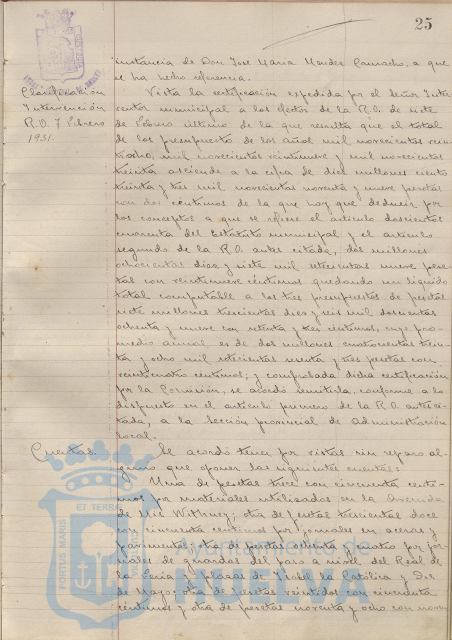 25
instancia de Don José Maria Mendez Camacho, a que
se ha hecho referencia.
Clasificación
Intervención
R.O. 7 Febrero
1931.
Vista la certificación expedida por el Señor Inter-
ventor municipal a los efectos de la R.O. de siete
de Febrero último de la que resulta que el total
de los presupuesto de los años mil novecientos vein-
tiocho, mil novecientos veintinueve y mil novecientos
treinta asciende a la cifra de diez millones ciento
treinta y tres mil novecientos noventa y nueve pesetas
con dos céntimos de la que hay que deducir por
los conceptos a que se refiere el articulo doscientos
cuarenta del Estatuto municipal y el articulo
segundo de la R.O. antes citada, dos millones
ochocientas diez y siete mil setecientas nueve pese-
tas con veintinueve centimos quedando un liquido
total computable a los tres presupuestos de pesetas
siete millones trescientas diez y seis mil doscientas
ochenta y nueve con setenta y tres céntimos, cuyo pro-
medio anual es de dos millones cuatrocientas trein-
ta y ocho mil setecientas sesenta y tres pesetas con
veinticuatro centimos; y comprobada dicha certificación
por la Comisión, se acordó remitirla, conforme a lo
dispuesto en el articulo primero de la R.O. antes ci-
tada, a la Sección provincial de Administración
local.
Cuentas.
Se acordó tener por vistas sin reparo al-
guno que oponer las siguientes cuentas:
Una de pesetas trece con cincuenta centi-
mos por materiales utilizados en la Avenida
de Mis Withney; otra de pesetas trescientas doce
con cincuenta centimos por jornales en aceras y
pavimentos; otra de pesetas ochenta y cuatro por jor-
nales de guardas del paso a nivel del Real de
la Feria y plazas de Isabel la Católica y Dos
de Mayo; otra de pesetas veintidos con cincuenta
centimos y otra de pesetas noventa y ocho con noven
ET TERRA
PORTUS MARIS
Ayuntamiento de
HUELVA